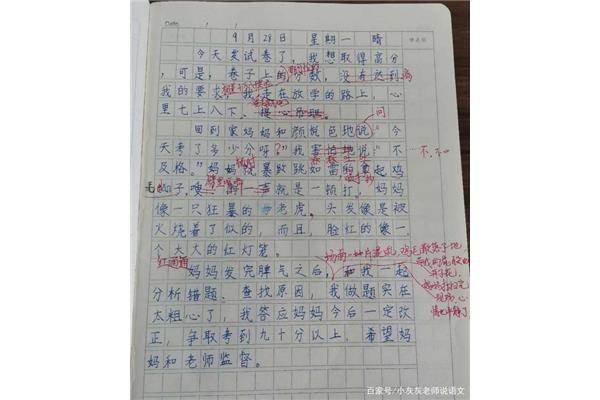 Date / /
9月28日 星期一 晴
今天发试卷了，我想取得高分
，可是，卷子上的分数，没有达到
我的要求，我走在放学的路上，心
里七上八下、提心吊胆。
问
回到家妈妈和颜悦色地说："今
天考了多少分呀？"我害怕地说："不
不、不如
及格。"妈妈暴跳如雷的拿起鸡
毛
就是一顿打，妈妈
像一只狂暴的老虎。头发像是被
火烧着了似的，而且，脸红的像一
个大大的红灯笼。
红通通
场面一地片混乱，鸡毛散落了地，
妈妈发完脾气之后，和我一起
分析错题、查找原因，我做题实在
太粗心了，我答应妈妈今后一定改
正，争取考到九十分以上，希望妈
妈和老师监督。
百家号/小灰灰老师说语文